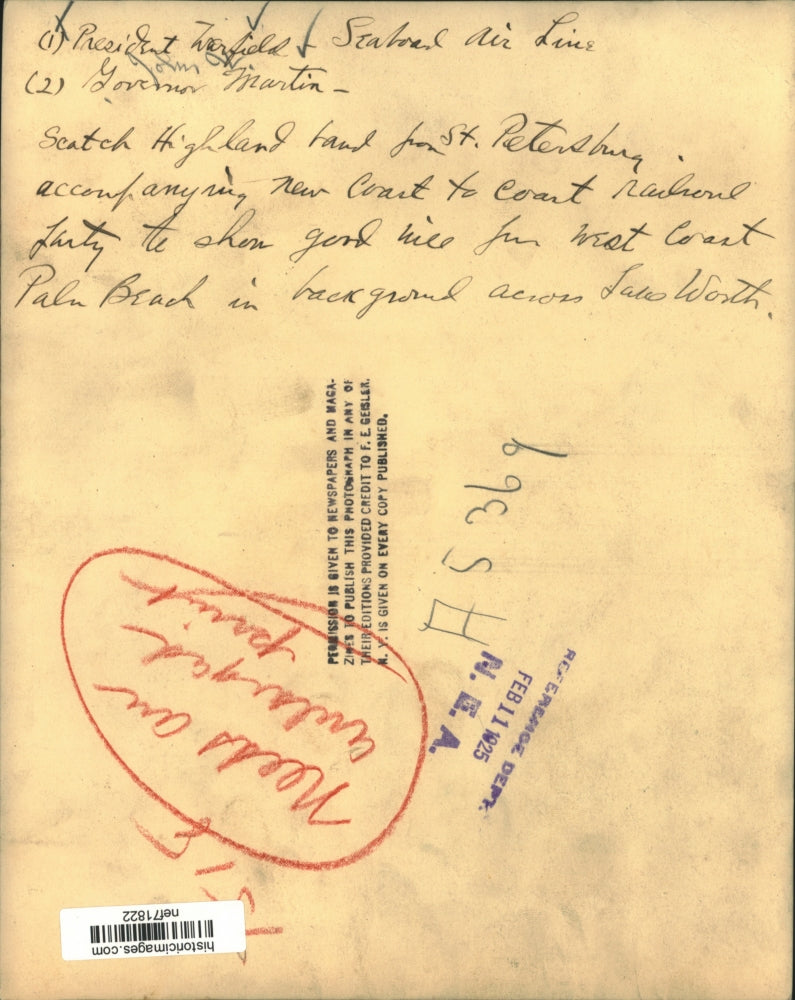 (1) President Warfield - Seaboard Air Line
John W.
(2) Governor Martin -
Scotch Highland band from St. Petersburg.
accompanying new Coast to Coast railroad
party to show good will from West Coast
Palm Beach in background across Lake Worth.
PERMISSION IS GIVEN TO NEWSPAPERS AND MAGA-
ZINES TO PUBLISH THIS PHOTOGRAPH IN ANY OF
THEIR EDITIONS PROVIDED CREDIT TO F. E. GEISLER.
N. Y. IS GIVEN ON EVERY COPY PUBLISHED.
A5369
REFERENCE DEPT.
FEB 11 1925
N. E. A.
Needs an
enlarged
print
historicimages.com
nef71822